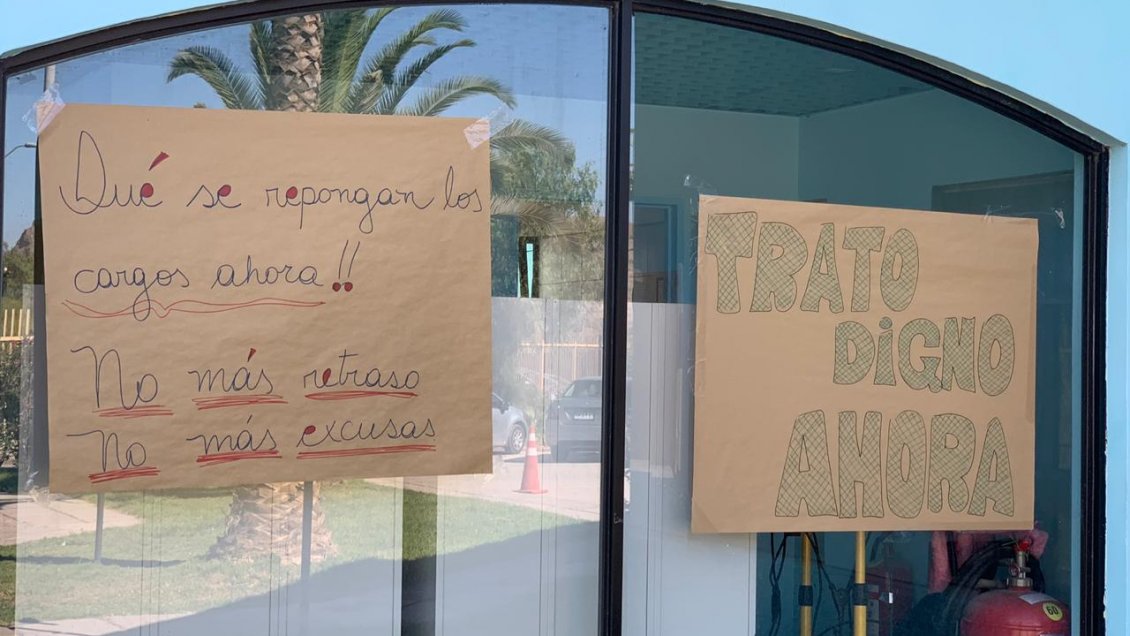 Qué se repongan los
cargos ahora!!
No más retraso
No más excusas
TRATO
DiGNO
AHORA
60